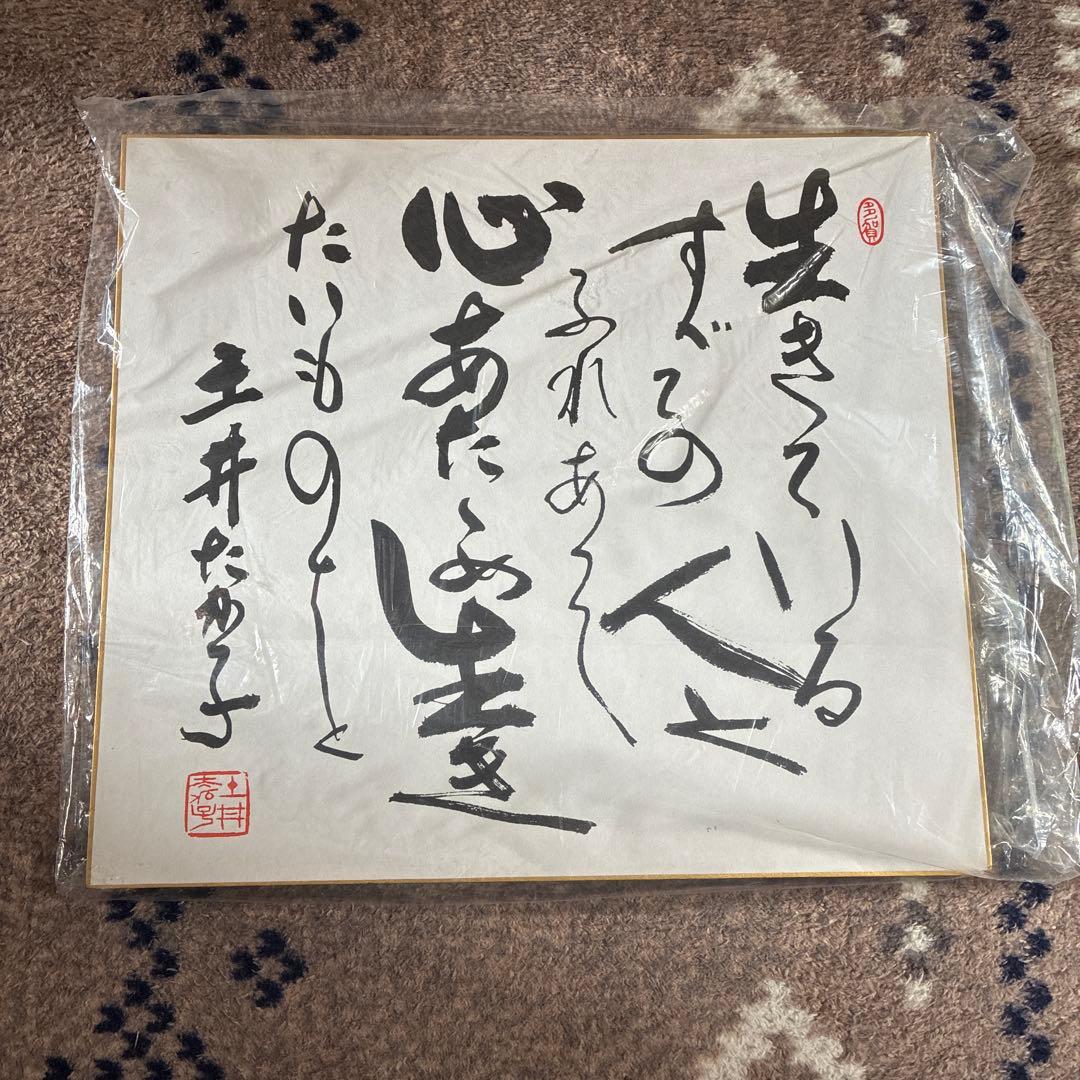 多賀
生きている
すべての人と
ふれあ
心あたゝめ生き
たいもの
土井たか子
土井